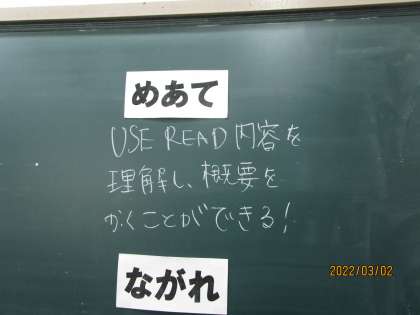 めあて
USE READ 内容を
理解し、概要を
かくことができる!
ながれ
2022/03/02